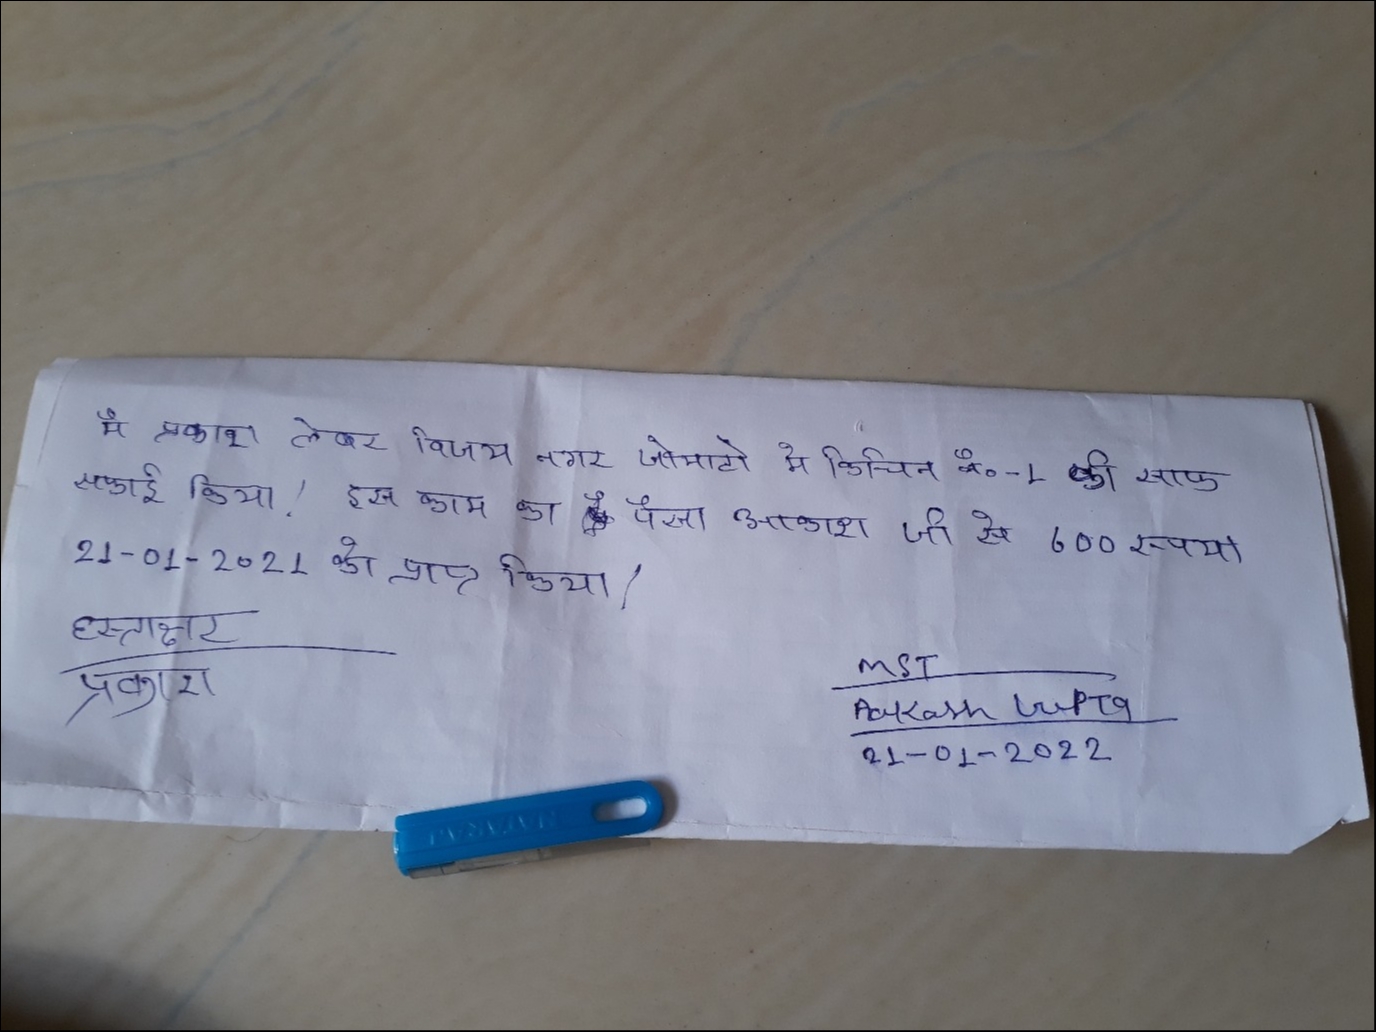 मै प्रकाश लेबर विजय नगर जोमाटो मे किचिन नं०-1 की साफ
सफाई किया! इस काम का पैसा आकाश जी से 600 रूपया
21-01-2021 को प्राप्त किया!
हस्ताक्षर
प्रकाश
MST
Aakash Gupta
21-01-2022
NATARAJ